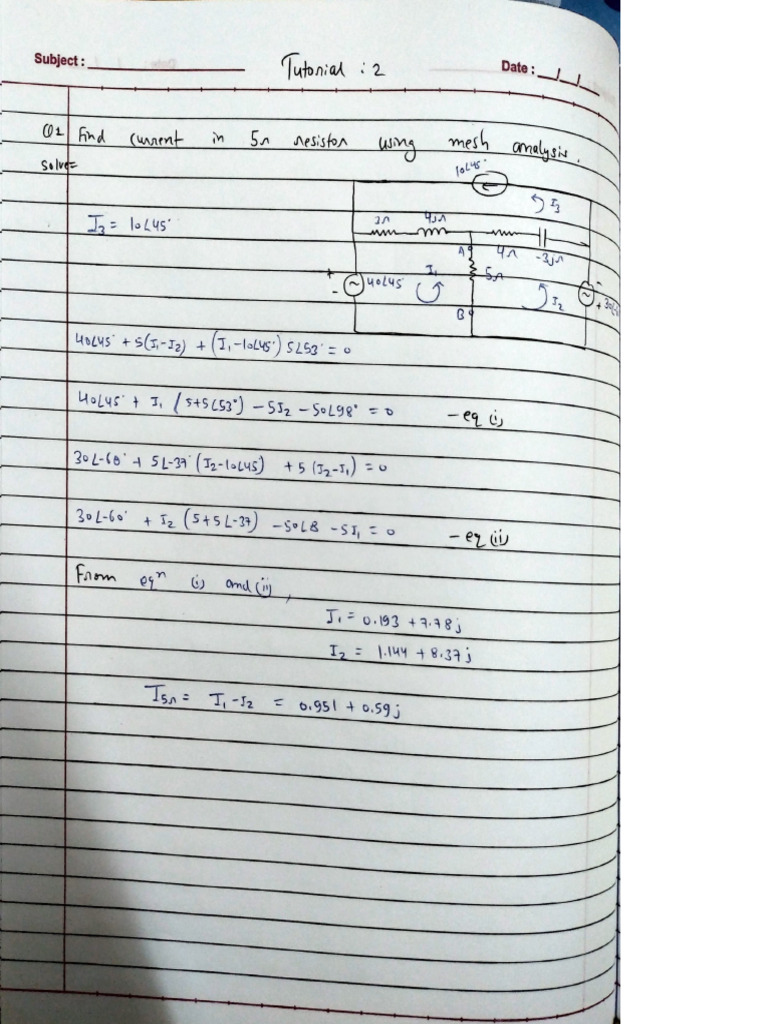 Subject :
Tutorial : 2
Date : _/_/_
Q1 Find current in 5Ω resistor using mesh analysis.
Solve=
10∠45°
I₃
I₃ = 10∠45°
3Ω 4jΩ
4Ω -3jΩ
A
5Ω
I₁
I₂
B
+
-
40∠45°
-
+
40∠45° + 5(I₁-I₂) + (I₁-10∠45°) 5∠53° = 0
40∠45° + I₁ (5+5∠53°) - 5I₂ - 50∠98° = 0 - eq (i)
30∠-60° + 5∠-37° (I₂-10∠45) + 5 (I₂-I₁) = 0
30∠-60° + I₂ (5+5∠-37) - 50∠8 - 5I₁ = 0 - eq (ii)
From eqⁿ (i) and (ii),
I₁ = 0.193 + 7.78j
I₂ = 1.144 + 8.37j
I₅Ω = I₁ - I₂ = 0.951 + 0.59j